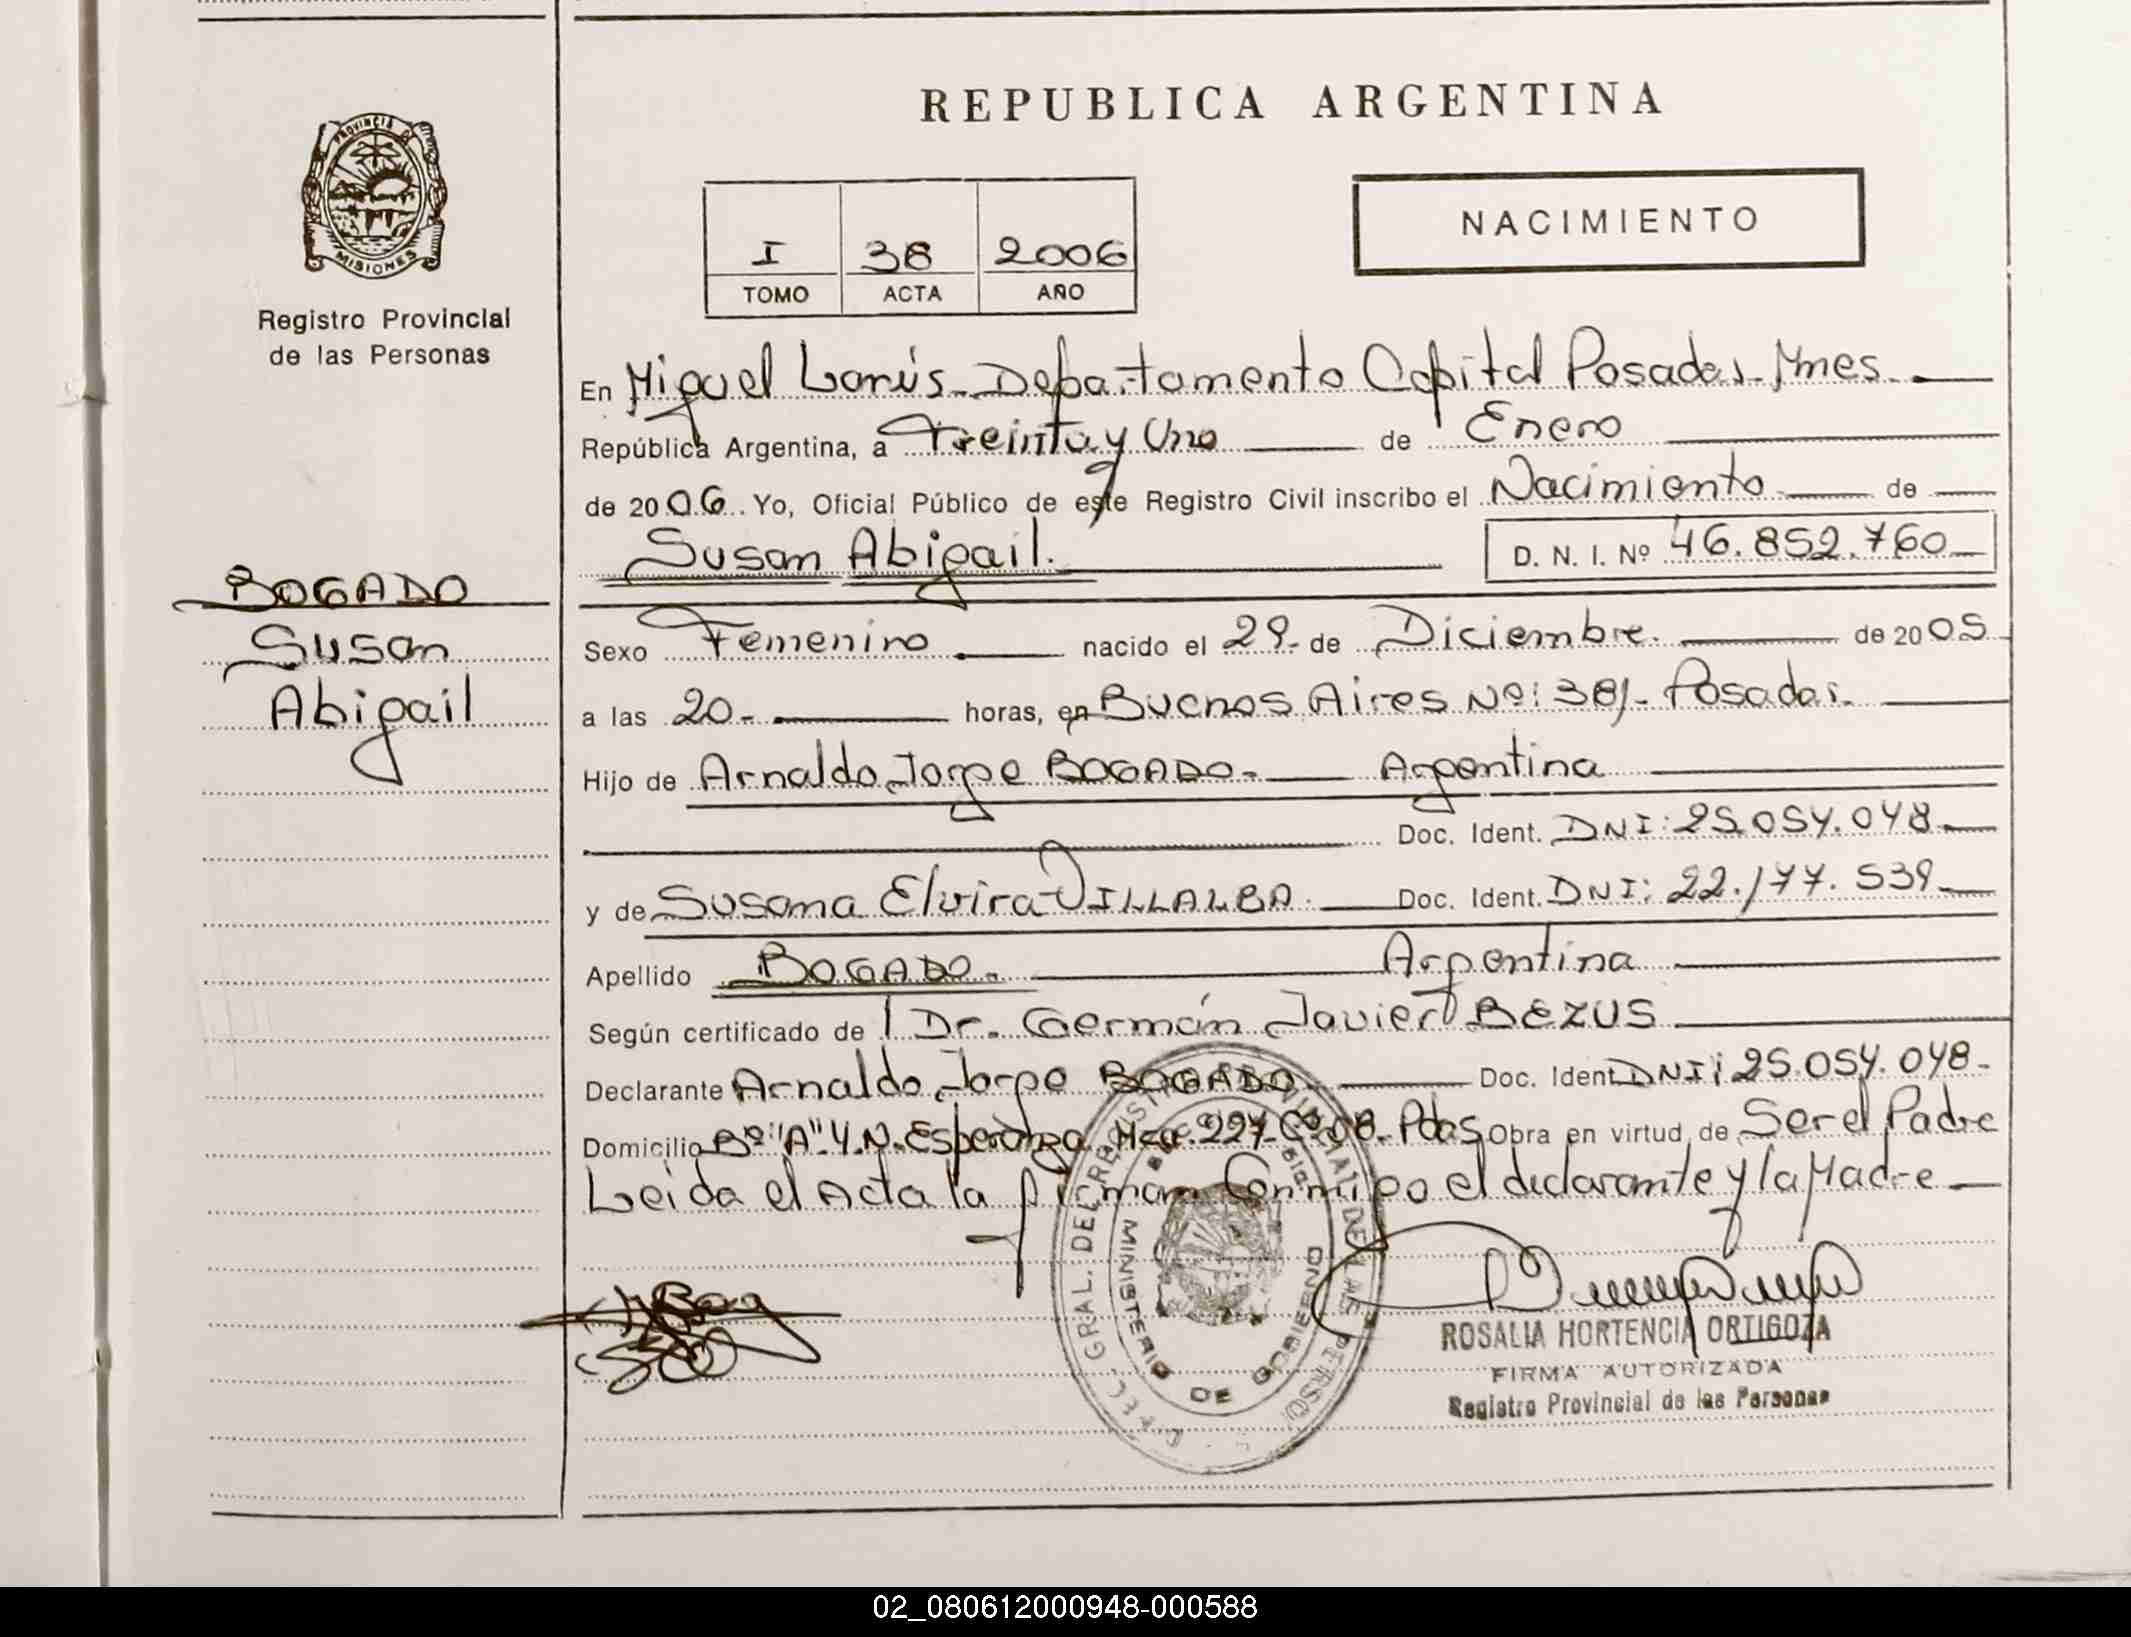 REPUBLICA ARGENTINA
PROVINCIA DE
MISIONES
Registro Provincial
de las Personas
NACIMIENTO
I 38 2006
TOMO ACTA AÑO
En Miguel Lanús - Departamento Capital Posadas - Mnes.
República Argentina, a Treinta y Uno de Enero
de 2006. Yo, Oficial Público de este Registro Civil inscribo el Nacimiento de
Susan Abigail. D. N. I. Nº 46.852.760
BOGADO
Susan
Abigail
Sexo Femenino nacido el 29- de Diciembre. de 2005
a las 20- horas, en Buenos Aires Nº: 381- Posadas.
Hijo de Arnaldo Jorge BOGADO- Argentina
Doc. Ident. DNI: 25.054.048
y de Susana Elvira VILLALBA. Doc. Ident. DNI: 22.177.539
Apellido BOGADO. Argentina
Según certificado de Dr. Germán Javier BEZUS
Declarante Arnaldo Jorge BOGADO Doc. Ident DNI: 25.054.048-
Domicilio Bº "A" 4. N. Esperanza Mza. 227- Cº 08- Pdas Obra en virtud de Ser el Padre
Leida el Acta la firman Conmigo el declarante y la Madre
GRAL. DEL REGISTRO DE LAS
MINISTERIO DE GOBIERNO
ROSALIA HORTENCIA ORTIGOZA
FIRMA AUTORIZADA
Registro Provincial de las Personas
02_080612000948-000588